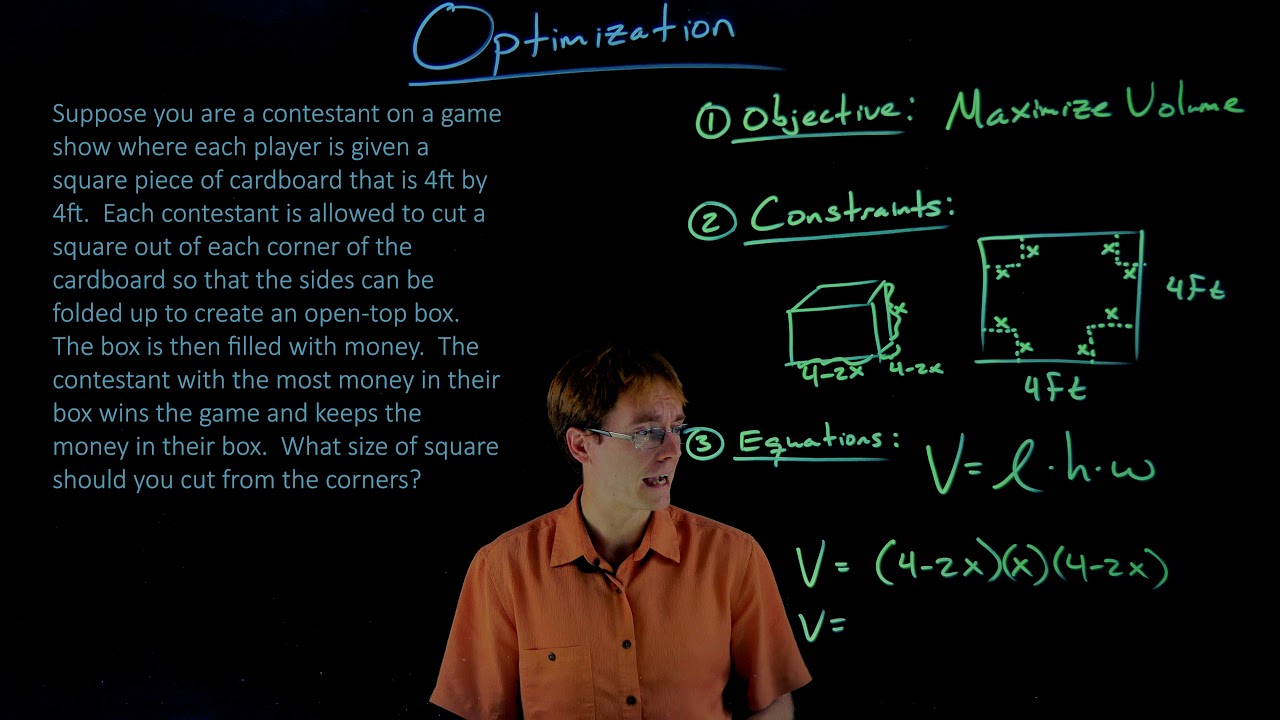 Optimization
Suppose you are a contestant on a game
show where each player is given a
square piece of cardboard that is 4ft by
4ft. Each contestant is allowed to cut a
square out of each corner of the
cardboard so that the sides can be
folded up to create an open-top box.
The box is then filled with money. The
contestant with the most money in their
box wins the game and keeps the
money in their box. What size of square
should you cut from the corners?
① Objective: Maximize Volume
② Constraints:
x x
x x
4Ft
x x
x x
4Ft
x
4-2x 4-2x
③ Equations:
V = l · h · w
V = (4-2x)(x)(4-2x)
V =